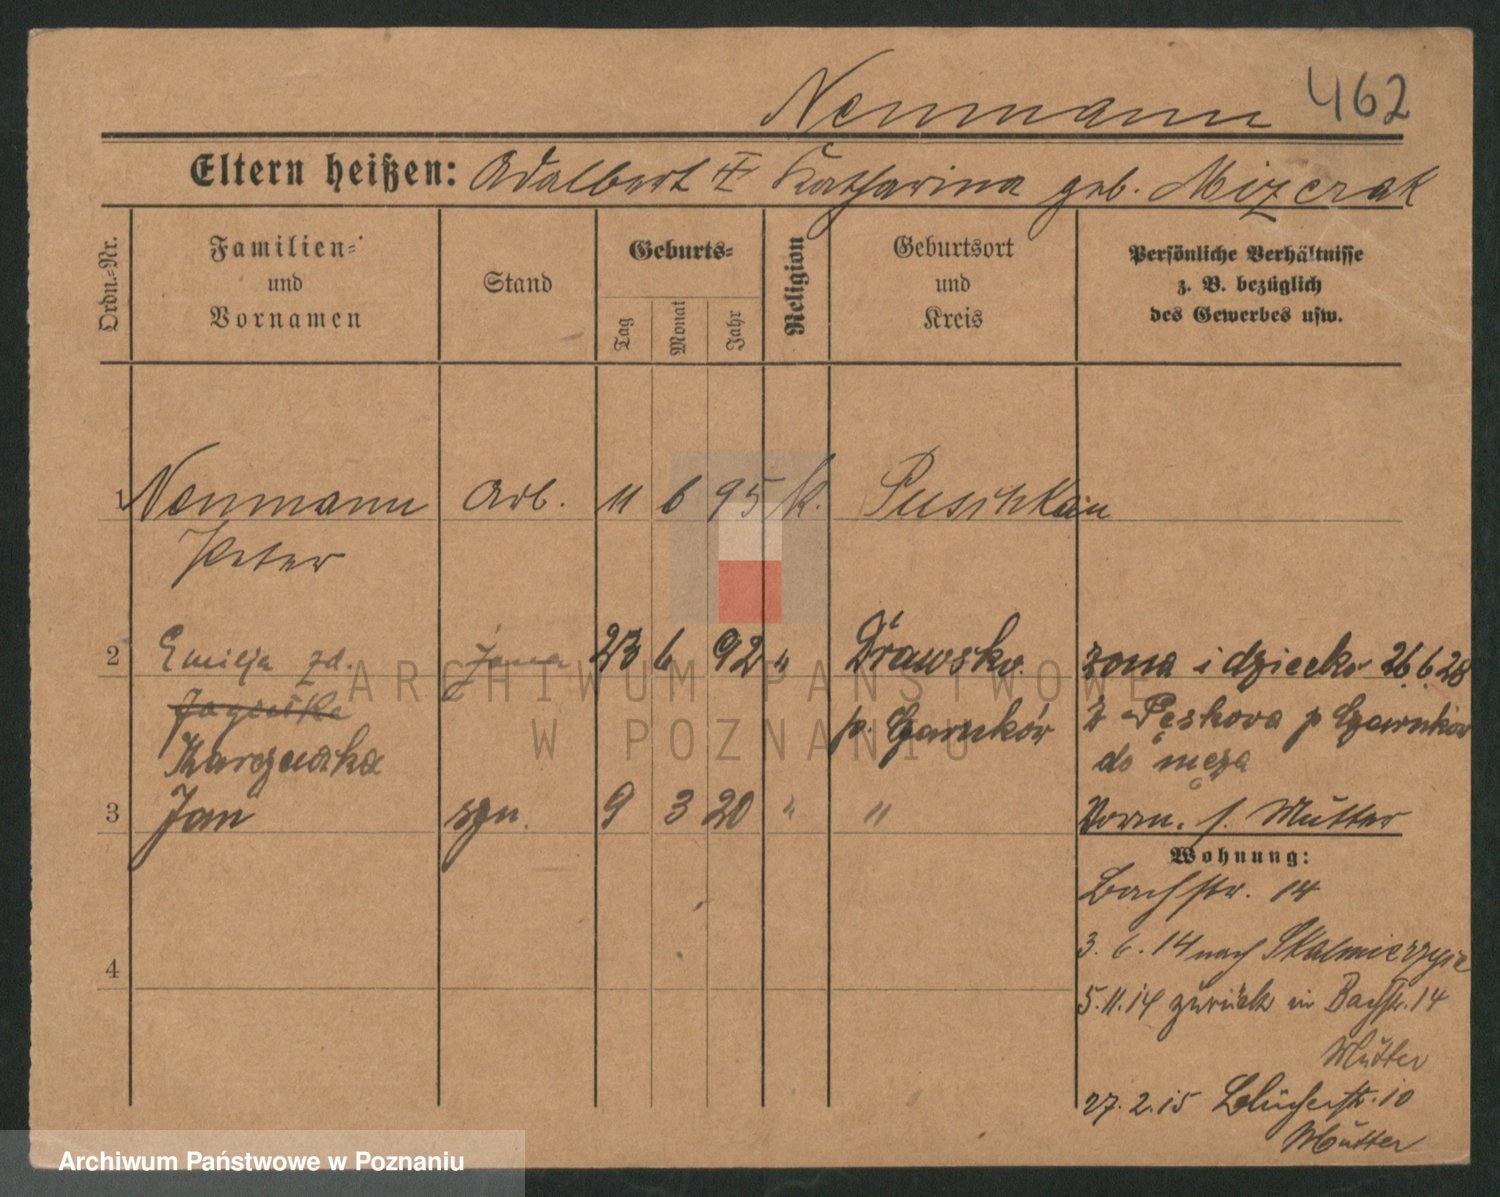 Neumann 462
Eltern heißen: Adalbert + Katharina geb. Mizerak
Ordn.-Nr.
Familien- und Vornamen
Stand
Geburts-
Tag
Monat
Jahr
Religion
Geburtsort und Kreis
Persönliche Verhältnisse z. B. bezüglich des Gewerbes usw.
1 Neumann Arb. 11 6 95 K. Puschkain
Peter
2 Emilja zd. żona 23 6 92 " Drawsko żona i dziecko 26 6 28
p. Czarnków z Pęskova p Czarnków
do męża
3 Jan syn. 9 3 20 " " Vorm. s. Mutter
Wohnung:
Bachstr. 14
3. 6. 14 nach Skalmierzyce
4
5.11.14 zurück in Bachstr. 14
Mutter
27. 2. 15 Blücherstr. 10
Mutter
ARCHIWUM PAŃSTWOWE
W POZNANIU
Archiwum Państwowe w Poznaniu